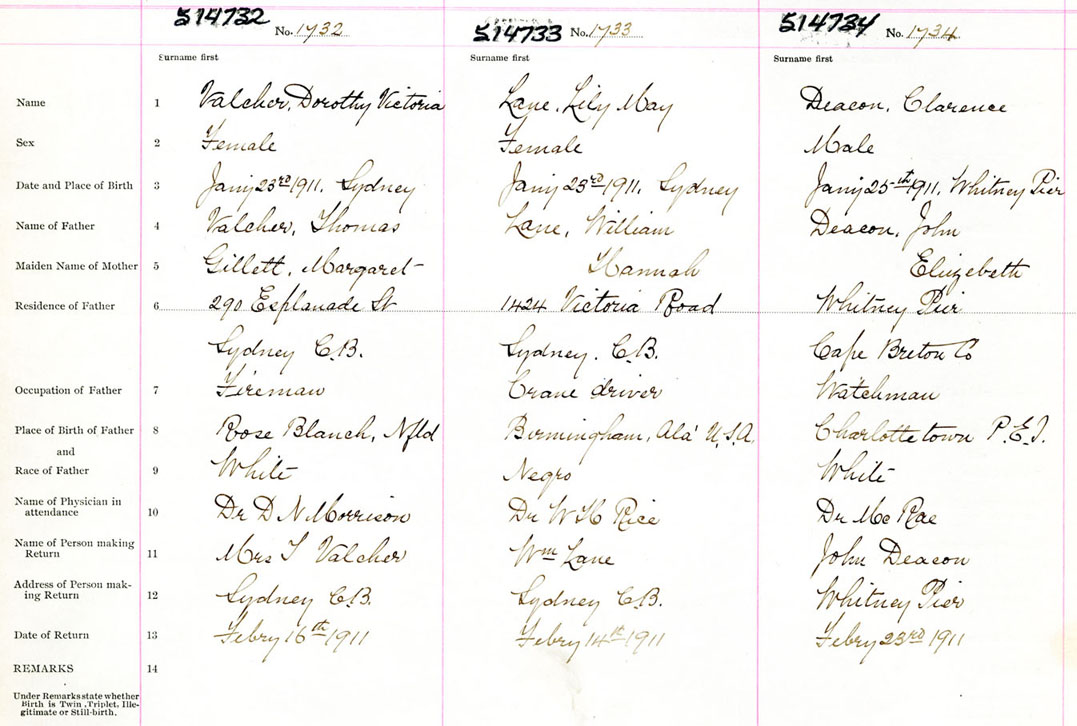 514732 No. 1732 514733 No. 1733 514734 No. 1734
Surname first Surname first Surname first
Name 1 Valcher, Dorothy Victoria Lane, Lily May Deacon, Clarence
Sex 2 Female Female Male
Date and Place of Birth 3 Jany 23rd 1911, Sydney Jany 23rd 1911, Sydney Jany 25th 1911, Whitney Pier
Name of Father 4 Valcher, Thomas Lane, William Deacon, John
Maiden Name of Mother 5 Gillett, Margaret Hannah Elizebeth
Residence of Father 6 290 Esplanade St 1424 Victoria Road Whitney Pier
Sydney C.B. Sydney. C.B. Cape Breton Co
Occupation of Father 7 Fireman Crane driver Watchman
Place of Birth of Father 8 Rose Blanch, Nfld Birmingham, Ala' U.S.A. Charlottetown P.E.I.
and
Race of Father 9 White Negro White
Name of Physician in
attendance 10 Dr D N Morrison Dr W H Rice Dr Mc Rae
Name of Person making
Return 11 Mrs T Valcher Wm Lane John Deacon
Address of Person mak-
ing Return 12 Sydney C.B. Sydney C.B. Whitney Pier
Date of Return 13 Febry 16th 1911 Febry 14th 1911 Febry 23rd 1911
REMARKS 14
Under Remarks state whether
Birth is Twin, Triplet, Ille-
gitimate or Still-birth.